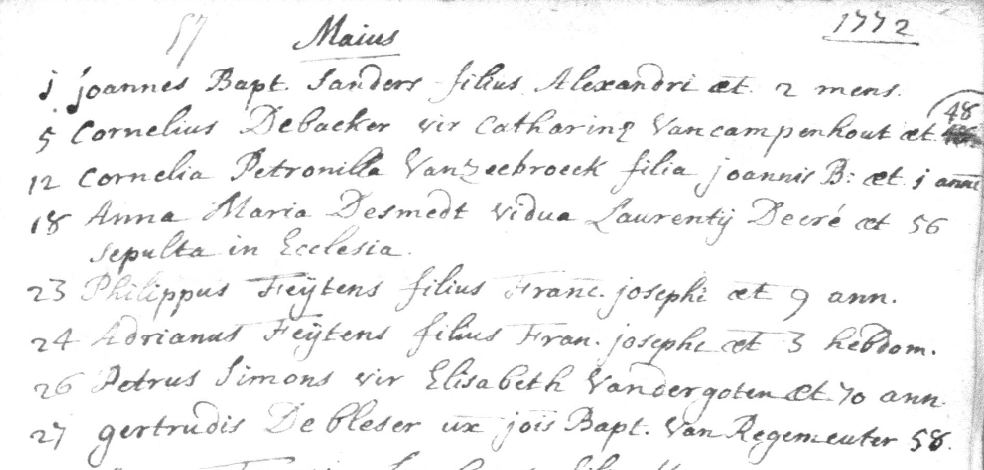 57 Maius 1772
1 joannes Bapt. Sanders filius Alexandri æt. 2 mens.
5 Cornelius Debacker vir Catharinę Vancampenhout æt. 48
12 Cornelia Petronilla Vanzeebroeck filia joannis B: æt. 1 anni
18 Anna Maria Desmedt vidua Laurentij Decré æt 56
sepulta in Ecclesia.
23 Philippus Feÿtens filius Franc. josephi æt 9 ann.
24 Adrianus Feÿtens filius Fran. josephi æt 3 hebdom.
26 Petrus Simons vir Elisabeth Vandergoten æt 70 ann.
27 gertrudis De bleser ux jois Bapt. Van Regemeuter 58.